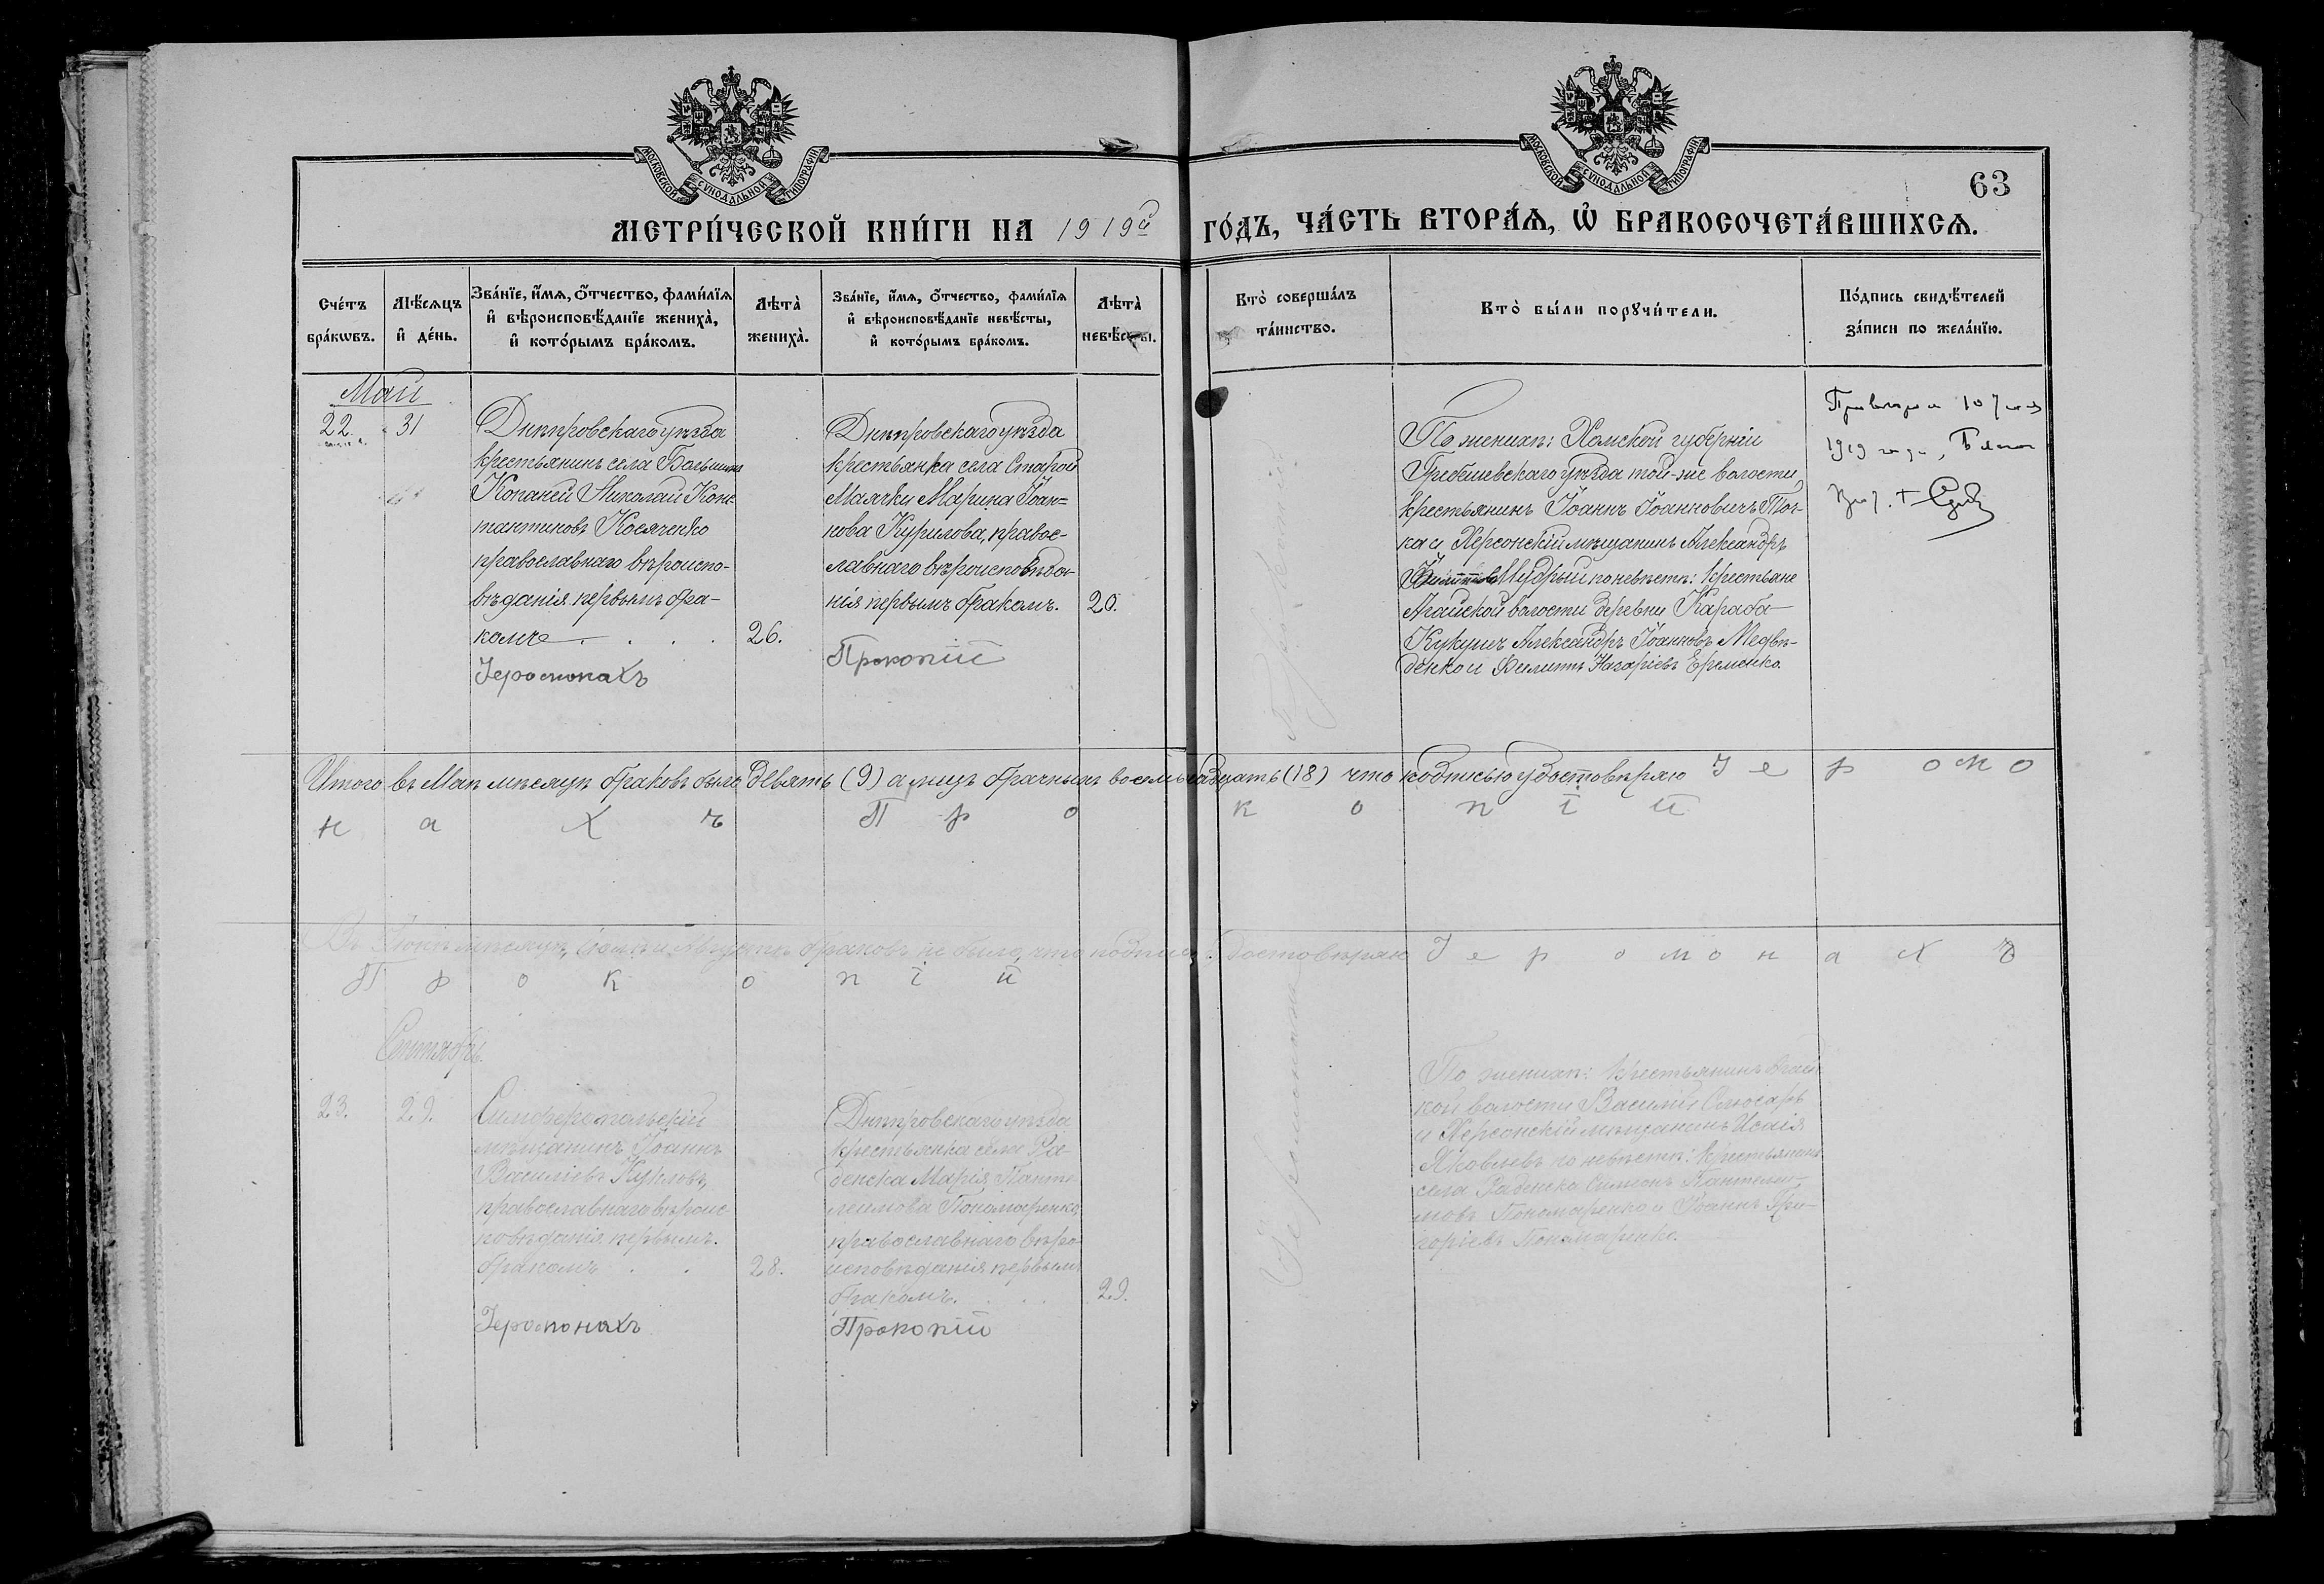 МОСКОВСКОЙ СУНОДАЛЬНОЙ ТИПОГРАФІИ
МОСКОВСКОЙ СУНОДАЛЬНОЙ ТИПОГРАФІИ
63
МЕТРИ́ЧЕСКОЙ КНИ́ГИ НА 1919й ГО́ДЪ, ЧА́СТЬ ВТОРА́Ѧ, Ѽ БРАКОСОЧЕТА́ВШИХСѦ.
Сче́тъ
бра́кѡвъ.
Мѣ́сѧцъ
и҆ де́нь.
Зва́нїе, и҆́мѧ, ѻ҆́тчество, фами́лїѧ
и҆ вѣроисповѣ́данїе жениха̀,
и҆ кото́рымъ бра́комъ.
Лѣта̀
жениха̀.
Зва́нїе, и҆́мѧ, ѻ҆́тчество, фами́лїѧ
и҆ вѣроисповѣ́данїе невѣ́сты,
и҆ кото́рымъ бра́комъ.
Лѣта̀
невѣ́сты.
Кто̀ соверша́лъ
та́инство.
Кто̀ бы́ли порꙋчи́тели.
По́дпись свидѣ́телей
за́писи по жела́нїю.
Май
22.
31
Днѣпровскаго уѣзда
крестьянинъ села Большихъ
Копаней Николай Конс
тантиновъ Косяченко
православнаго вѣроиспо-
вѣданія первымъ бра-
комъ
26.
Іеромонахъ
Днѣпровскаго уѣзда
крестьянка села Старой
Маячки Марина Іоан=
нова Курилова, правос-
лавнаго вѣроисповѣда-
нія первымъ бракомъ.
20.
Прокопій
По женихѣ: Холмской губерніи
уѣзда той-же волости,
крестьянинъ Іоаннъ Іоанновичъ
ка и Херсонскій мѣщанинъ Александръ
Мудрый по невѣстѣ: крестьяне
Агайской волости деревни Караба-
Кукушъ Александръ Іоанновъ Медвѣ-
денко и Филиппъ Назаріевъ Еременко
1919 года,
Итого въ Маѣ мѣсяцѣ браковъ было девять (9) а лицъ брачныхъ восемьнадцать (18) что подписью удостовѣряю І е р о м о
н а х ъ П р о к о п і й
Въ Іюнѣ мѣсяцѣ, Іюлѣ и Августѣ браковъ не было, что подписью удостовѣряю І е р о м о н а х ъ
П р о к о п і й
Сентябрь.
23.
29.
Симферопольскій
мѣщанинъ Іоаннъ
Василіевъ Кукловъ,
православнаго вѣроис-
повѣданія первымъ
бракомъ
28.
Іеромонахъ
Днѣпровскаго уѣзда
крестьянка села Ра-
денска Марія Панте-
леимова Пономаренко,
православнаго вѣро-
исповѣданія первымъ
бракомъ.
29.
Прокопій
Іеромонахъ Прокопій
По женихѣ: крестьянинъ Агай-
кой волости Василій Слюсарь
и Херсонскій мѣщанинъ Исаія
Яковлевъ по невѣстѣ: крестьяне
села Раденска Симеонъ Пантелеи-
мовъ Пономаренко и Іоаннъ Гри-
горіевъ Пономаренко.